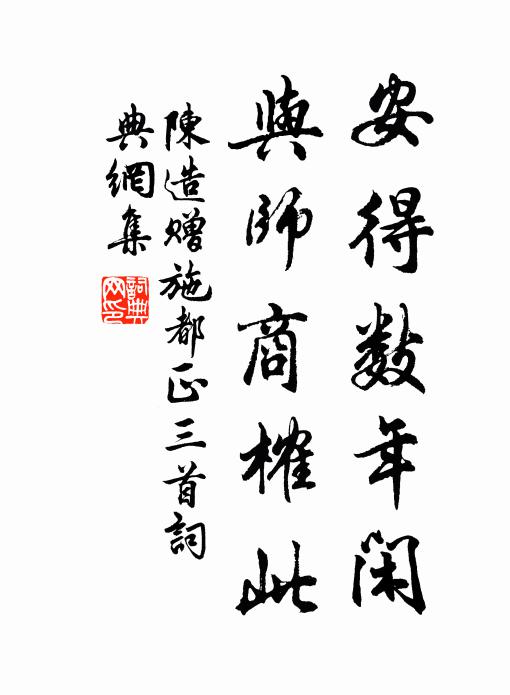 安得数年闲
與師商榷此
陳造赠施都正三首詞
典網集
詞典网印